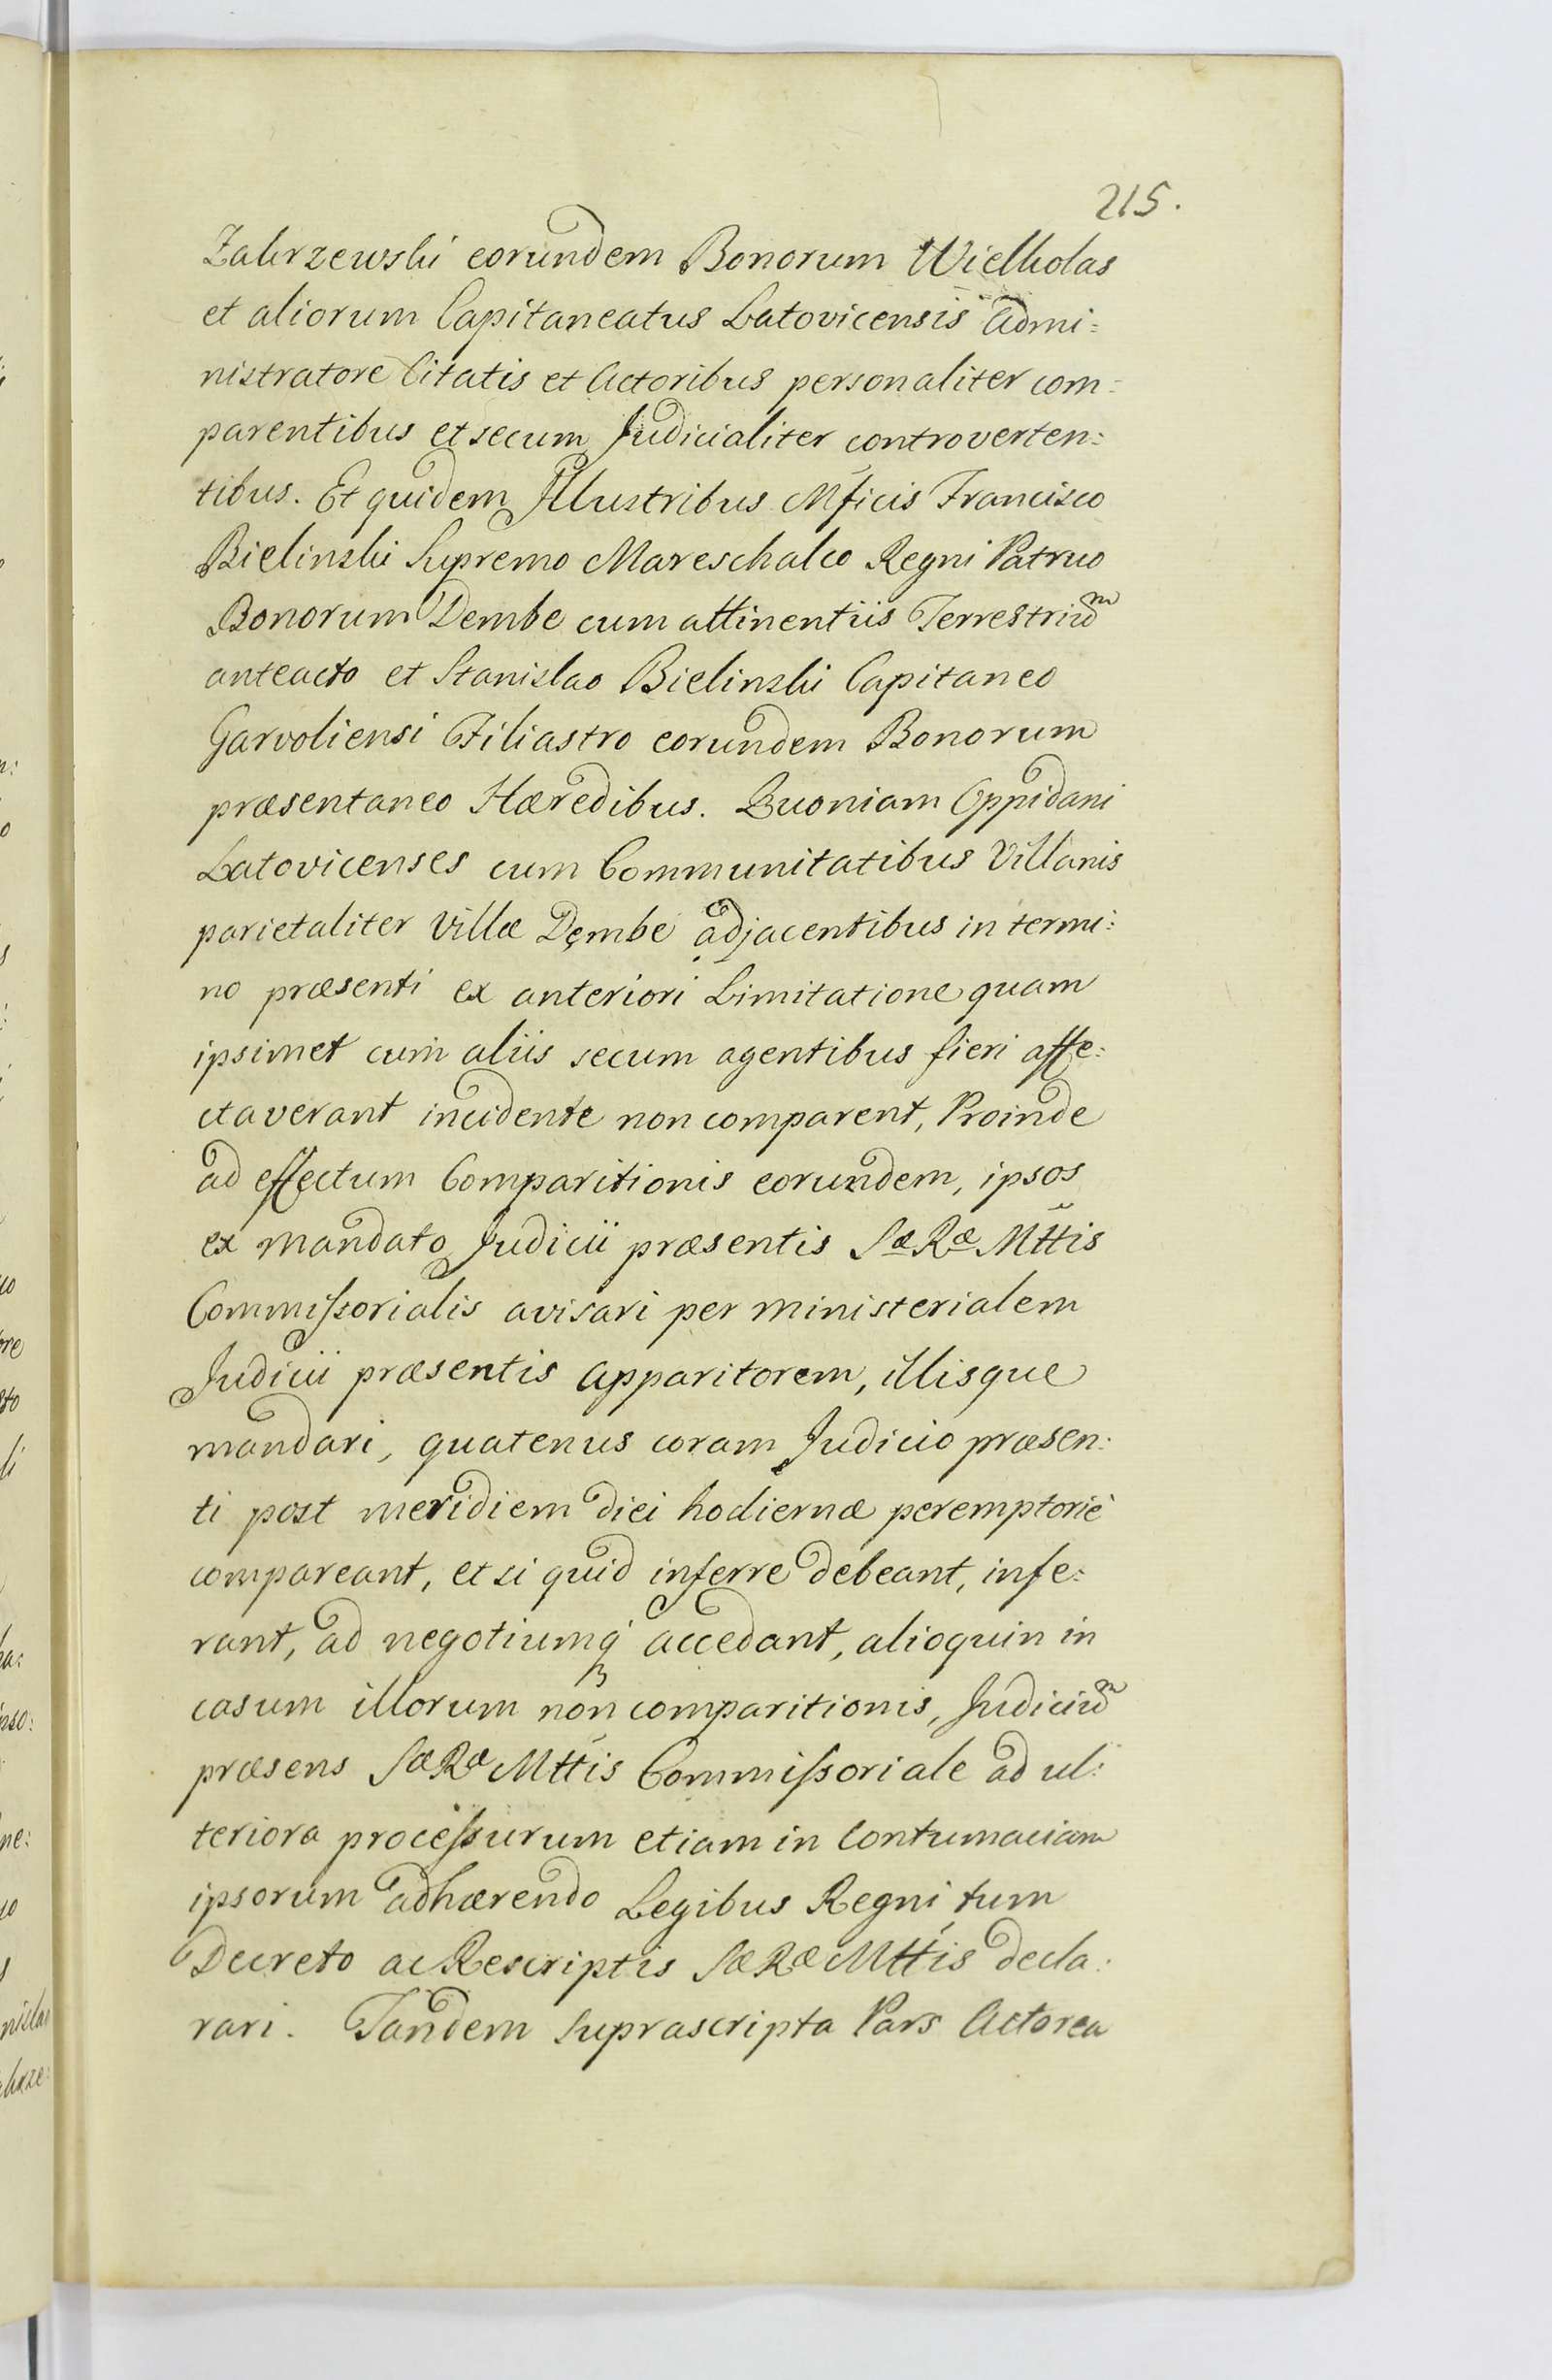 215.
Zakrzewski eorundem Bonorum Wielkolas
et aliorum Capitaneatus Latovicensis Admi:
nistratore Citatis et Actoribus personaliter com:
parentibus et secum Judicialiter controverten:
tibus. Et quidem Jllustribus Mficis Francisco
Bielinski Supremo Mareschalco Regni Patruo
Bonorum Dembe cum attinentiis Terrestriũ
anteacto et Stanislao Bielinski Capitaneo
Garvoliensi Filiastro eorundem Bonorum
præsentaneo Hæredibus. Quoniam Oppidani
Latovicenses cum Communitatibus Villanis
parietaliter Villæ Dęmbe adjacentibus in termi:
no præsenti ex anteriori Limitatione quam
ipsimet cum aliis secum agentibus fieri affe:
ctaverant incidente non comparent, Proinde
ad effectum Comparitionis eorundem, ipsos
ex mandato Judicii præsentis Sæ Ræ Mttis
Commiſsorialis avisari per ministerialem
Judicii præsentis Apparitorem, illisque
mandari, quatenus coram Judicio præsen:
ti post meridiem diei hodiernæ peremptoriè
compareant, et si quid inferre debeant, infe:
rant, ad negotiumq́ accedant, alioquin in
casum illorum non comparitionis, Judiciũ
præsens Sæ Ræ Mttis Commiſsoriale ad ul:
teriora proceſsurum etiam in Contumaciam
ipsorum adhærendo Legibus Regni tum
Decreto ac Rescriptis Sæ Ræ Mttis decla:
rari. Tandem Suprascripta Pars Actorea